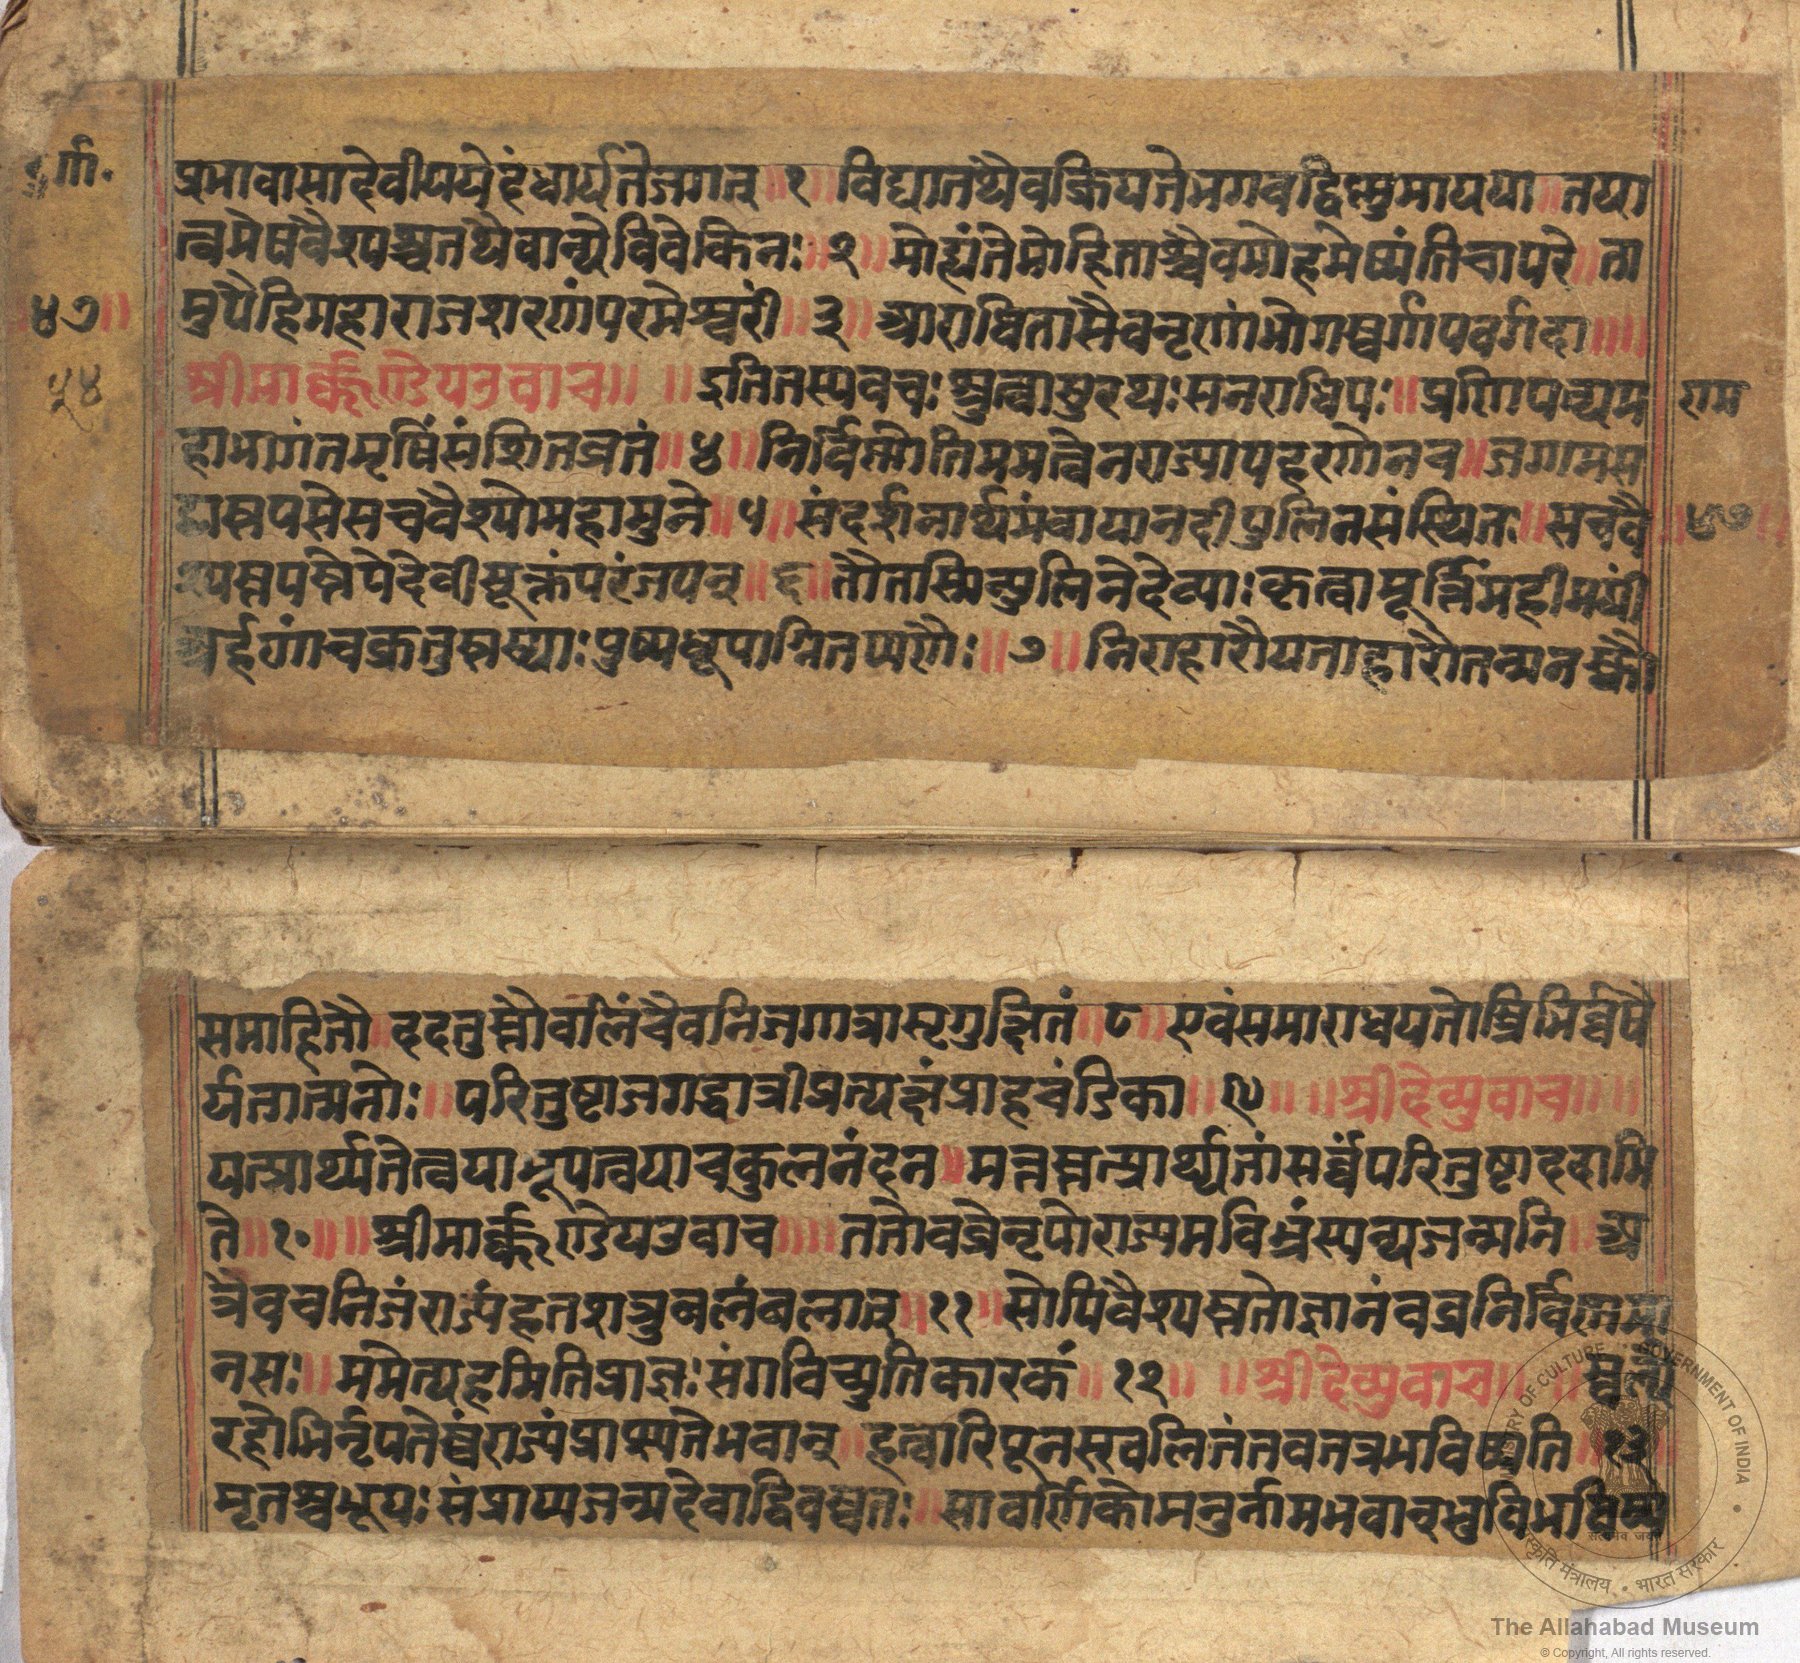 दुर्गा.
प्रभावासादेवीययेदंधार्यतेजगत् ॥१॥ विद्यातथैवक्रियतेभगवद्विष्णुमायया ॥ तया
त्वमेषवैश्पश्चतथैवान्येविवेकिनः ॥२॥ मोह्यंतेमोहिताश्चैवमोहमेष्यंतिचापरे ॥ ता
॥४७॥
मुपैहिमहाराजशरणंपरमेश्वरीं ॥३॥ आराधितासैवनृणांभोगस्वर्गापवर्गदा ॥॥
५४
श्रीमार्क्कण्डेयउवाच ॥ ॥ इतितस्यवचः श्रुत्वासुरथः सनराधिपः ॥ प्रणिपत्यम
राम
हाभागंतमृषिंसंशितव्रतं ॥४॥ निर्विण्णोतिममत्वेनराज्यापहरणेनच ॥ जगामस
द्यस्तपसेसचवैश्योमहामुने ॥५॥ संदर्शनार्थमंवायानदीपुलिनसंस्थितः ॥ सचवै
॥४७॥
श्यस्तपस्तेपेदेवीसूक्तंपरंजपन् ॥६॥ तौतस्मिन्पुलिनेदेव्याः कृत्वामूर्त्तिंमहीमयीं
अर्हणांचक्रतुस्तस्याः पुष्पधूपाग्नितर्प्पणैः ॥७॥ निराहारौयताहारौतन्मनस्कौ
समाहितौ ॥ ददतुस्तौवलिंचैवनिजगात्रासृगुक्षितं ॥८॥ एवंसमाराधयतोस्त्रिभिर्व्वर्षै
र्यतात्मनोः ॥ परितुष्टाजगद्धात्रीप्रत्यक्षंप्राहचंडिका ॥९॥ ॥ श्रीदेव्युवाच ॥ ॥
यत्प्रार्थ्यतेत्वयाभूपत्वयाचकुलनंदन ॥ मत्तस्तत्प्रार्थ्यतांसर्व्वंपरितुष्टाददामि
ते ॥१०॥ ॥ श्रीमार्क्कण्डेयउवाच ॥॥ ततोवव्रेनृपोराज्यमविभ्रंस्यन्यजन्मनि ॥ अ
त्रैवचनिजंराज्यंहतशत्रुबलंबलात् ॥११॥ सोपिवैश्यस्ततोज्ञानंवव्रेनिर्विण्णमा
नसः ॥ ममेत्यहमितिप्राज्ञः संगविच्युतिकारकं ॥१२॥ ॥ श्रीदेव्युवाच ॥ ॥ स्वल्पै
रहोभिर्नृपतेस्वंराज्यंप्राप्स्यतेभवान् ॥ हत्वारिपूनस्खलितंतवतत्रभविष्यति ॥१३॥
मृतश्चभूयः संप्राप्यजन्मदेवाद्विवस्वतः ॥ सावर्णिकोमनुर्नामभवान्भुविभविष्य
MINISTRY OF CULTURE GOVERNMENT OF INDIA
सत्यमेव जयते
संस्कृति मंत्रालय • भारत सरकार
The Allahabad Museum
© Copyright, All rights reserved.